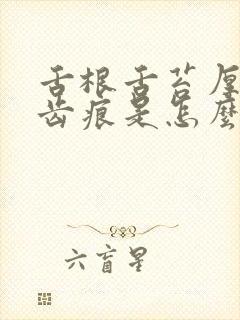 舌根舌苔厚
齿痕是怎麽
六盲星